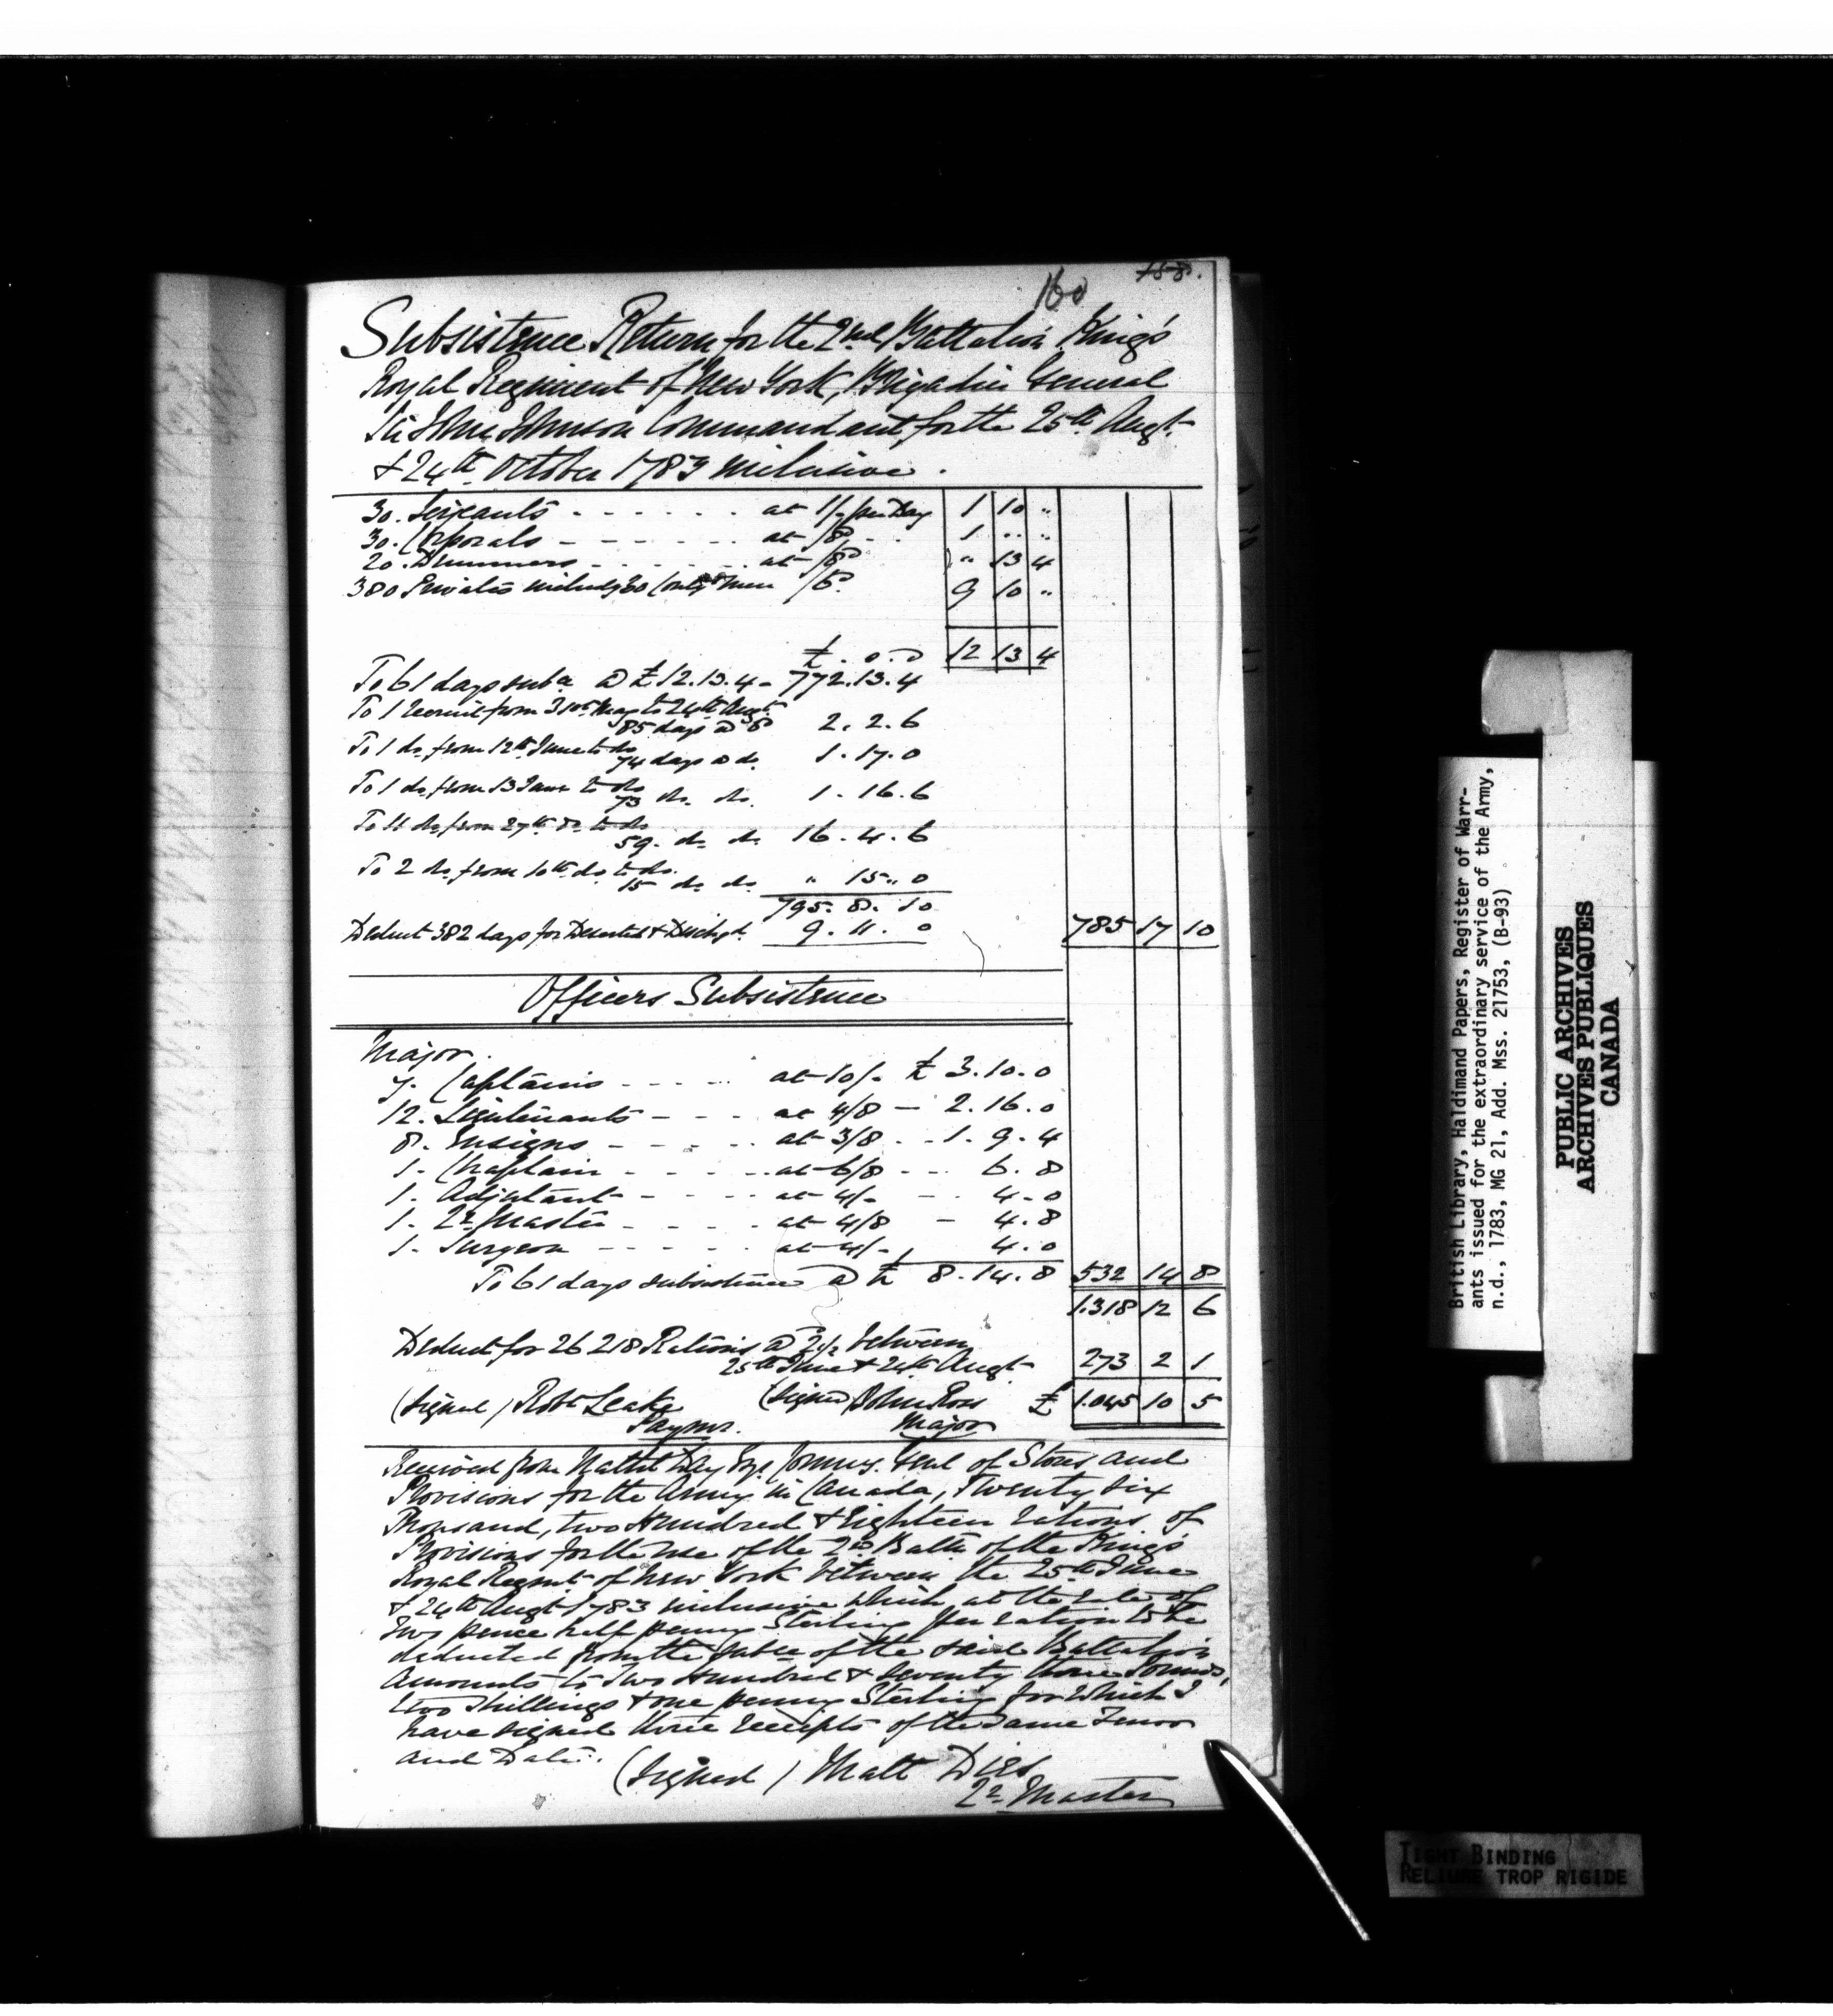 160 158.
Subsistence Return for the 2nd Battalion King's
Royal Regiment of New York, Brigadier General
Sir John Johnson Commandant, for the 25th Augt.
& 24th October 1783 inclusive.
30. Serjeants - - - - - - at 1/- per Day 1 10 "
30. Corporals - - - - - - at /8 - - 1 " "
20. Drummers - - - - - - at /8 " 13 4
380 Privates includg 30 Conty Men /6. 9 10 "
£ . o . o 12 13 4
To 61 days subce @ £12.13.4 - 772.13.4
To 1 recruit from 31st May to 24th Augt.
85 days @ 6 2. 2. 6
To 1 do from 12th June to do
74 days @ do. 1. 17. 0
To 1 do from 13 June to do
73 do. do. 1. 16. 6
To 11 do from 27th do to do
59. do do 16. 4. 6
To 2 do from 10th do to do.
15 do do " 15 " 0
795. 8. 10
Deduct 382 days for Deserted & Dischgd. 9. 11. 0 785 17 10
Officers Subsistence
Major.
7. Captains - - - - at 10/- £ 3.10.0
12. Lieutenants - - - at 4/8 - 2.16.0
8. Ensigns - - - - at 3/8 - - 1. 9. 4
1. Chaplain - - - - at 6/8 - - - 6. 8
1. Adjutant - - - - at 4/- - - 4. 0
1. Qr. Master - - - - at 4/8 - 4. 8
1. Surgeon - - - - - at 4/- 4. 0
To 61 days subsistence @ £ 8. 14. 8 532 14 8
1.318 12 6
Deduct for 26 218 Rations @ 2½ between
25th June & 24th Augt. 273 2 1
(Signed) Robt Leake (signed) John Ross £ 1.045 10 5
Paymr. Major
Received from Nathl Day Esqr Commy. Genl of Stores and
Provisions for the Army in Canada, Twenty Six
Thousand, two Hundred & Eighteen rations of
Provisions for the use of the 2nd Battn of the King's
Royal Regmt of New York between the 25th June
& 24th Augt 1783 inclusive which at the rate of
two pence half penny Sterling per ration to be
deducted from the subce of the said Battalion
Amounts to Two Hundred & seventy three Pounds,
two shillings & one penny Sterling for which I
have signed three receipts of the same Tenor
and Date.
(Signed) Matt Dies
Qr. Master
British Library, Haldimand Papers, Register of Warr-
ants issued for the extraordinary service of the Army,
n.d., 1783, MG 21, Add. Mss. 21753, (B-93)
PUBLIC ARCHIVES
ARCHIVES PUBLIQUES
CANADA
TIGHT BINDING
RELIURE TROP RIGIDE